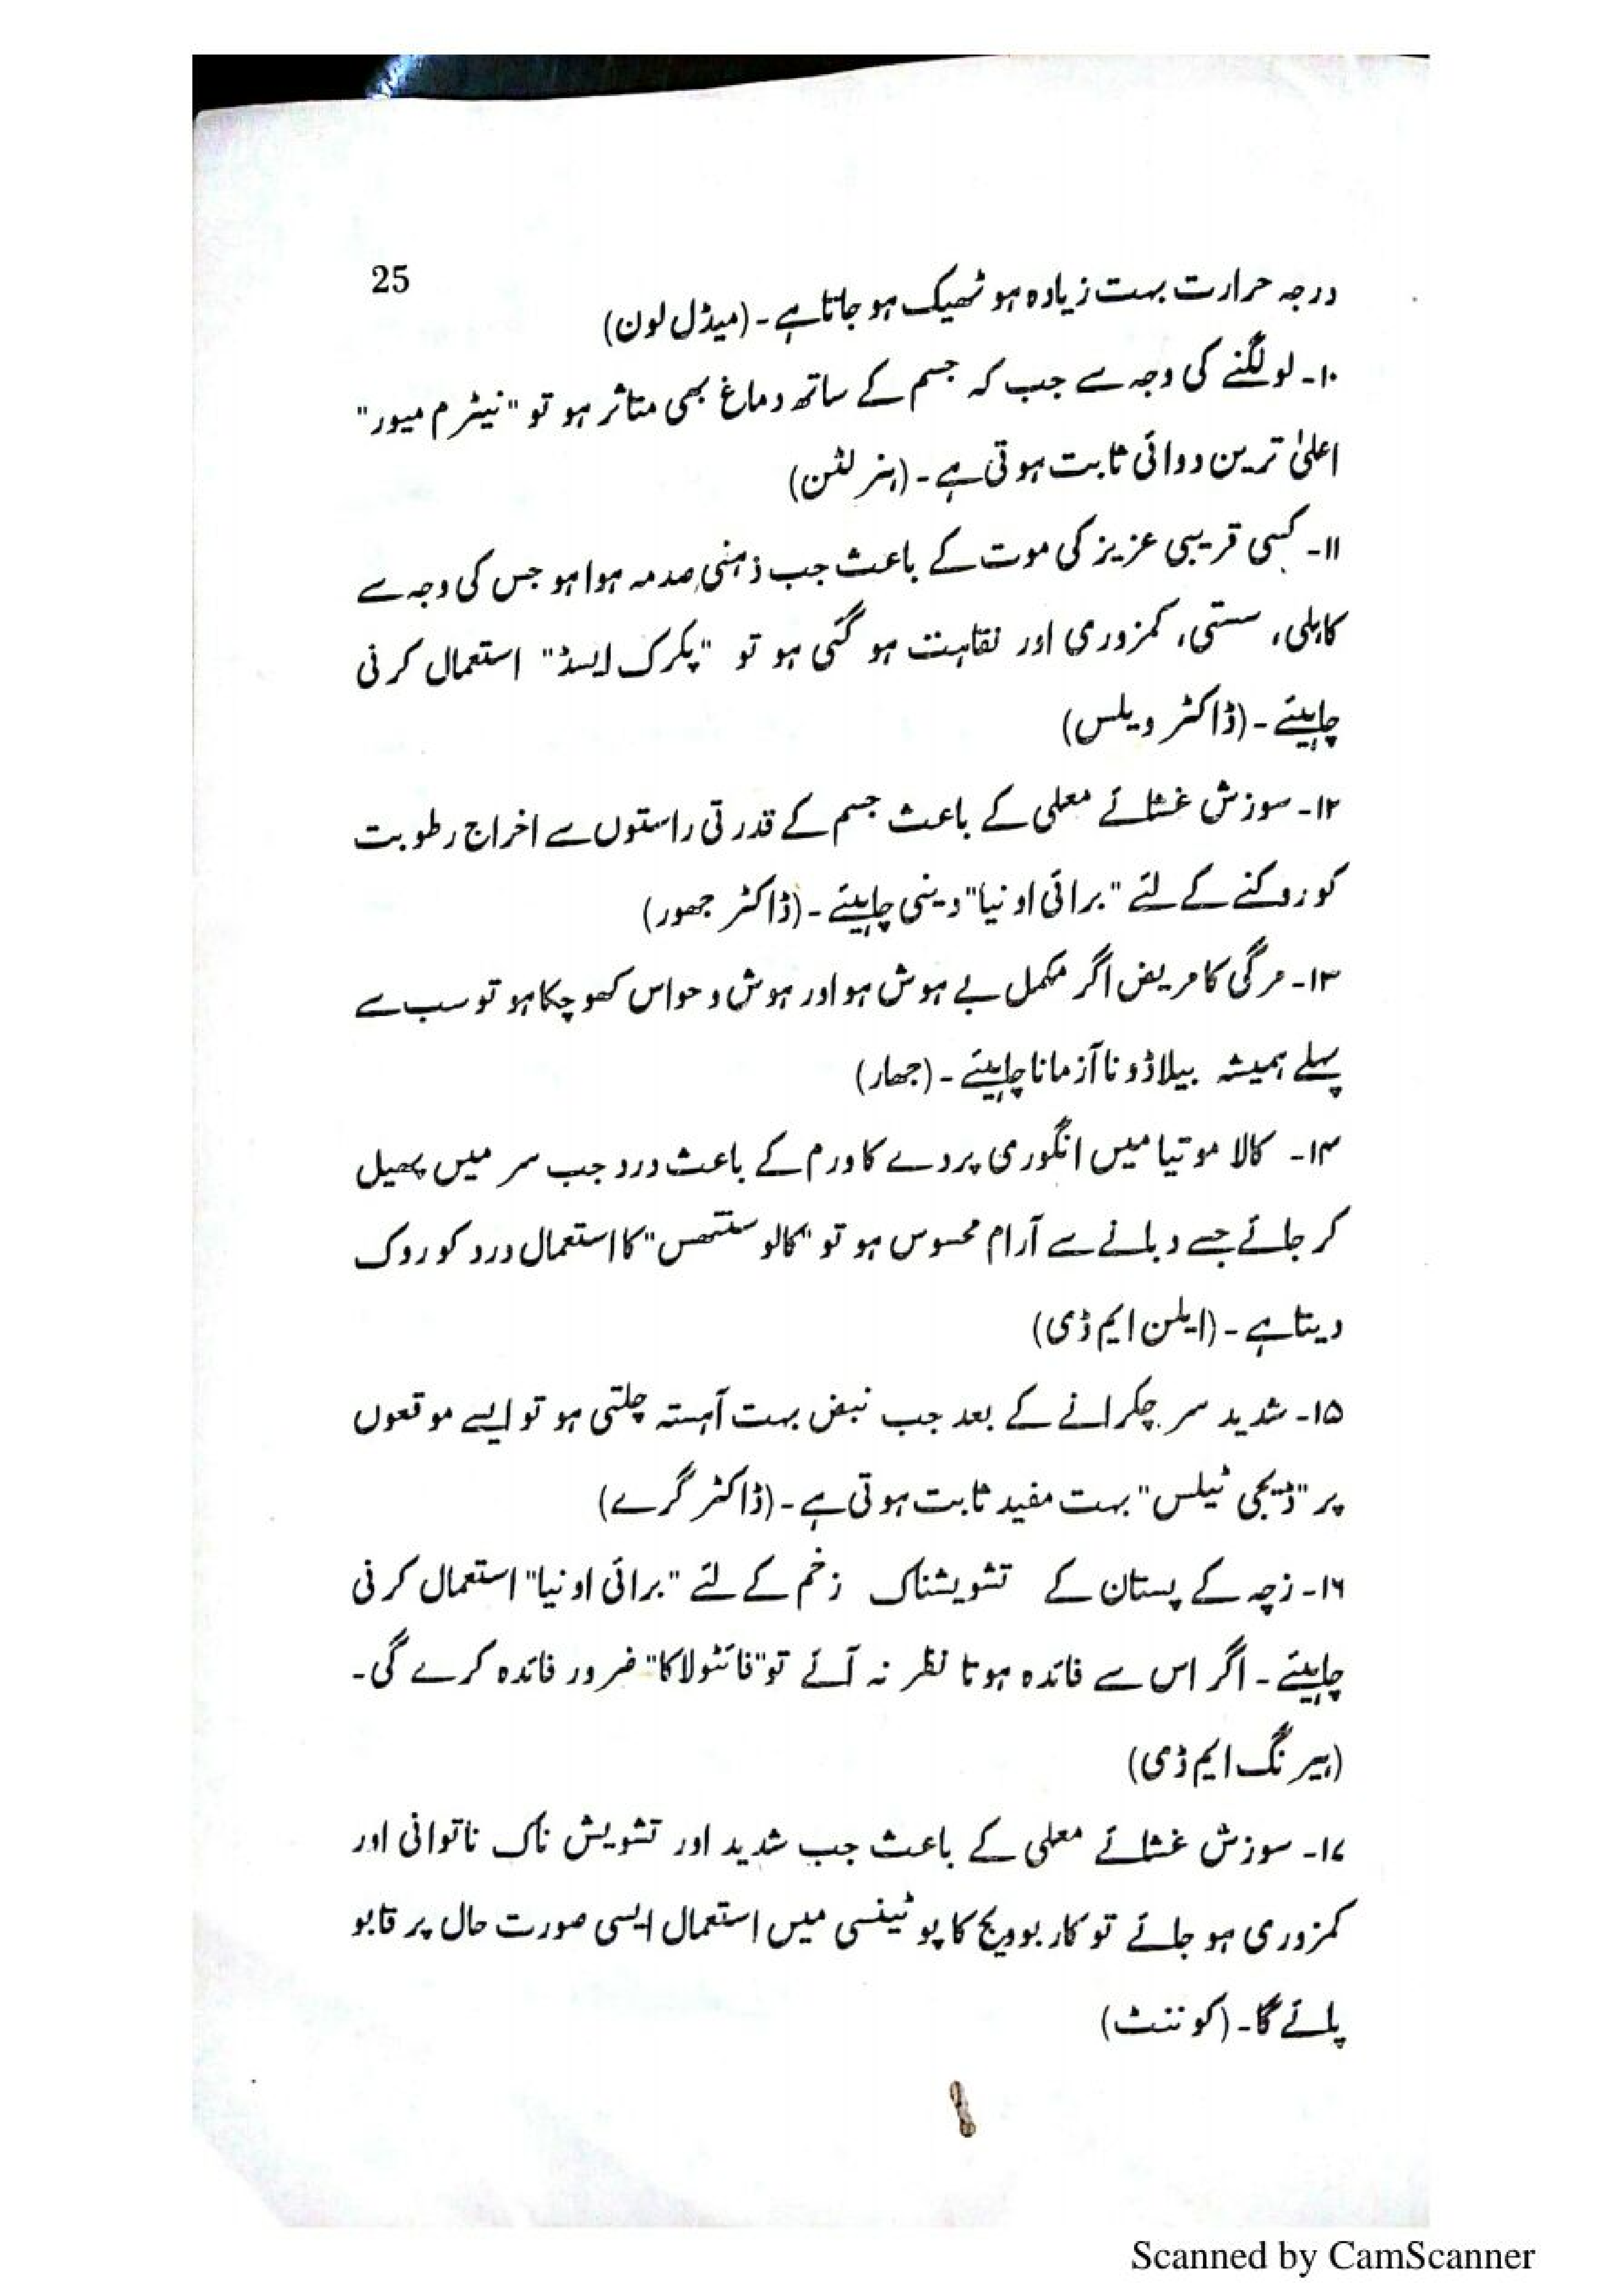 25
درجہ حرارت بہت زیادہ ہو ٹھیک ہو جاتا ہے۔ (میڈل لون)
۱۰۔ لو لگنے کی وجہ سے جب کہ جسم کے ساتھ دماغ بھی متاثر ہو تو "نیٹرم میور"
اعلیٰ ترین دوائی ثابت ہوتی ہے۔ (ہنر لٹن)
۱۱۔ کسی قریبی عزیز کی موت کے باعث جب ذہنی صدمہ ہوا ہو جس کی وجہ سے
کاہلی، سستی، کمزوری اور نقاہت ہو گئی ہو تو "پکرک ایسڈ" استعمال کرنی
چاہیئے۔ (ڈاکٹر ویلس)
۱۲۔ سوزش غشائے معلی کے باعث جسم کے قدرتی راستوں سے اخراج رطوبت
کو روکنے کے لئے "برائی اونیا" دینی چاہیئے۔ (ڈاکٹر جھور)
۱۳۔ مرگی کا مریض اگر مکمل بے ہوش ہو اور ہوش و حواس کھو چکا ہو تو سب سے
پہلے ہمیشہ بیلاڈونا آزمانا چاہیئے۔ (جھار)
۱۴۔ کالا موتیا میں انگوری پردے کا ورم کے باعث درد جب سر میں پھیل
کر جائے جسے دبانے سے آرام محسوس ہو تو "کالو سنتھس" کا استعمال درد کو روک
دیتا ہے۔ (ایلن ایم ڈی)
۱۵۔ شدید سر چکرانے کے بعد جب نبض بہت آہستہ چلتی ہو تو ایسے موقعوں
پر "ڈیجی ٹیلس" بہت مفید ثابت ہوتی ہے۔ (ڈاکٹر گرے)
۱۶۔ زچہ کے پستان کے تشویشناک زخم کے لئے "برائی اونیا" استعمال کرنی
چاہیئے۔ اگر اس سے فائدہ ہوتا نظر نہ آئے تو "فائٹولاکا" ضرور فائدہ کرے گی۔
(ہیرنگ ایم ڈی)
۱۷۔ سوزش غشائے معلی کے باعث جب شدید اور تشویش ناک ناتوانی اور
کمزوری ہو جائے تو کاربوویج کا پوٹینسی میں استعمال ایسی صورت حال پر قابو
پائے گا۔ (کوننٹ)
Scanned by CamScanner